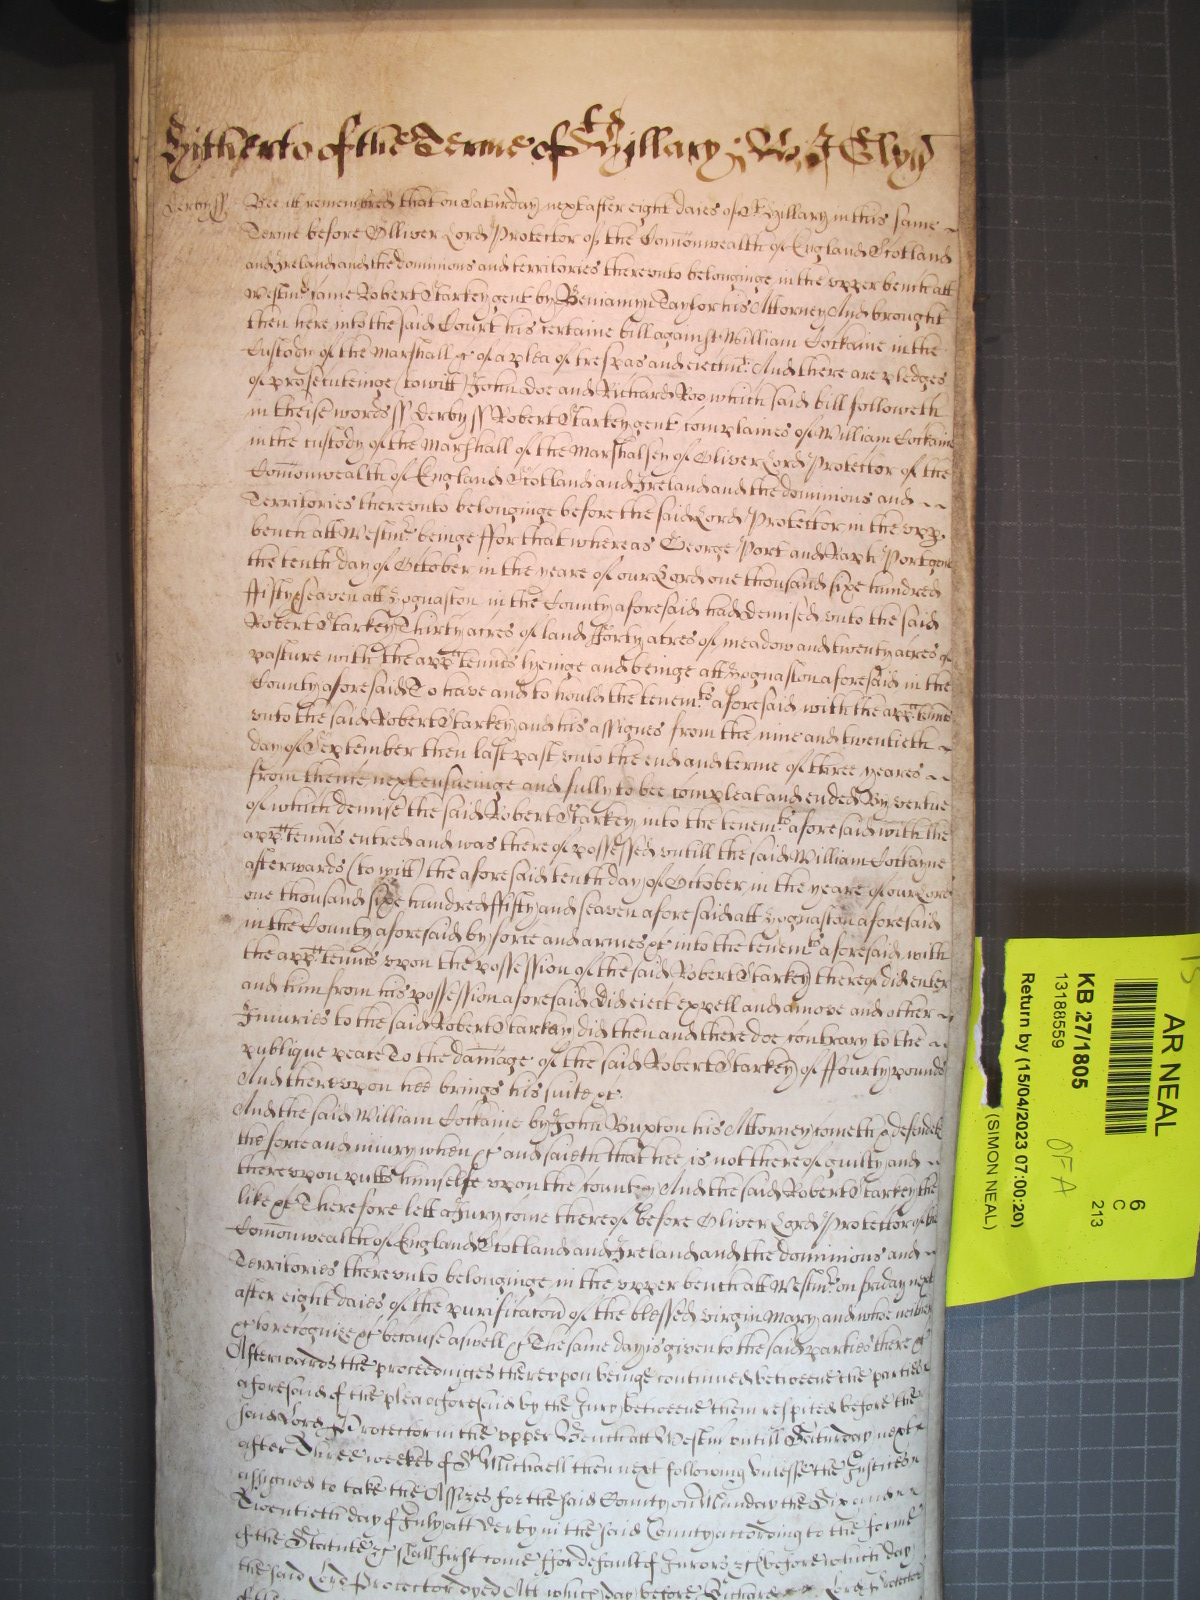 Hitherto of the Terme of St Hillary : W J Elyn
Derby ss Bee itt remembred that on Saturday next after eight daies of St Hillary in this same
Terme before Olliver Lord Protector of the Com̄onwealth of England Scotland
and Ireland and the dominions and territories therevnto belonginge in the vpper bench att
Westmr came Robert Starkey gent by Beniamyn Taylor his Attorney And brought
then here into the said Court his certaine bill against William Cockaine in the
Custody of the Marshall &c of a plea of trespas and eiectmt And there are pledges
of prosecuteinge (to witt) John Doe and Richard Roo which said bill followeth
in theise words ss Derby ss Robert Starkey gent complaines of William Cockaine
in the custody of the Marshall of the Marshalsey of Oliver Lord Protector of the
Com̄onwealth of England Scotland and Ireland and the dominions and
Territories therevnto belonginge before the said Lord Protector in the vpp
bench att Westmr beinge ffor that whereas George Port and Raph Port gent
the tenth day of October in the yeare of our Lord one thousand sixe hundred
ffifty & seaven att Hognaston in the County aforesaid had demised vnto the said
Robert Starkey Thirty acres of land fforty acres of meadow and twenty acres of
pasture with the apptennts lyeinge and beinge att Hognaston aforesaid in the
County aforesaid To have and to hould the tenemts aforesaid with the apptennts
vnto the said Robert Starkey and his assignes from the nine and twentieth
day of September then last past vnto the end and terme of three yeares
from thence next ensueinge and fully to bee compleat and ended By vertue
of which demise the said Robert Starkey into the tenemts aforesaid with the
apptennts entred and was thereof possessed vntill the said William Cockayne
afterwards (to witt) the aforesaid tenth day of October in the yeare of our Lord
one thousand sixe hundred ffifty and seaven aforesaid att Hognaston aforesaid
in the County aforesaid by force and armes &c into the tenemts aforesaid with
the apptennts vpon the possession of the said Robert Starkey thereof did enter
and him from his possession aforesaid did eiect expell and amove and other
Iniuries to the said Robert Starkey did then and there doe contrary to the
publique peace To the dam̄age of the said Robert Starkey of ffourty pounds
And therevpon hee brings his suite &c
And the said William Cockaine by John Buxton his Attorney cometh & defendeth
the force and iniury when &c and saieth that hee is not thereof guilty and
therevpon putts himselfe vpon the country And the said Robert Starkey the
like &c Therefore lett a Jury come thereof before Oliver Lord Protector of the
Com̄onwealth of England Scotland and Ireland and the dominions and
Territories therevnto belonginge in the vpper bench att Westmr on friday next
after eight daies of the purificac̄on of the blessed virgin Mary and whoe neither
&c to recognize &c because aswell &c The same day is given to the said parties there &c
Afterwards the proceedinges therevpon beinge continued betweene the parties
aforesaid of the plea aforesaid by the Jury betweene them respited before the
said Lord Protector in the vpper Bench att Westmr vntill Saturday next
after Three weekes of St Michaell then next following vnlesse the Justices
assigned to take the Assizes for the said County on Munday the Six and
Twentieth day of July att Derby in the said County according to the forme
of the Statute &c shall first come ffor default of Jurors &c before which day
the said Lord Protector dyed Att which day before Richard Lord Protector
of the
AR NEAL
KB 27/1805
13188559
Return by (15/04/2023 07:00:20)
(SIMON NEAL)
6
C
213
OFA
15